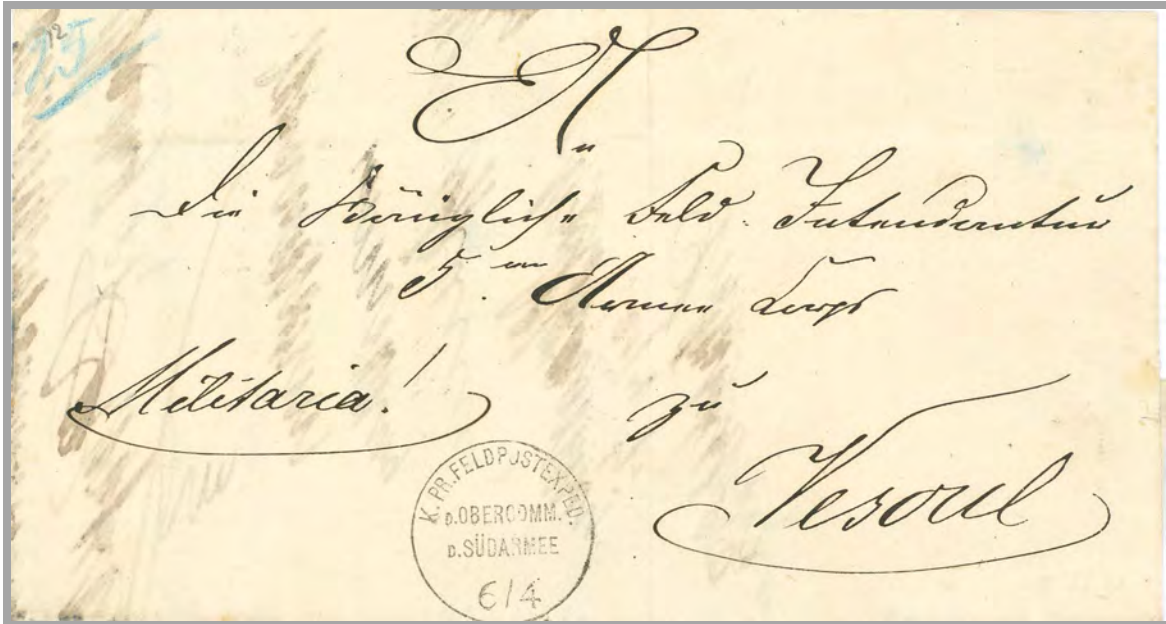 12
25
An
die Königliche Feld-Intendantur
5ten Armee Corps
Militaria!
zu
Vesoul
K. PR. FELDPOSTEXPED.
D.OBERCOMM.
D.SÜDARMEE
6/4